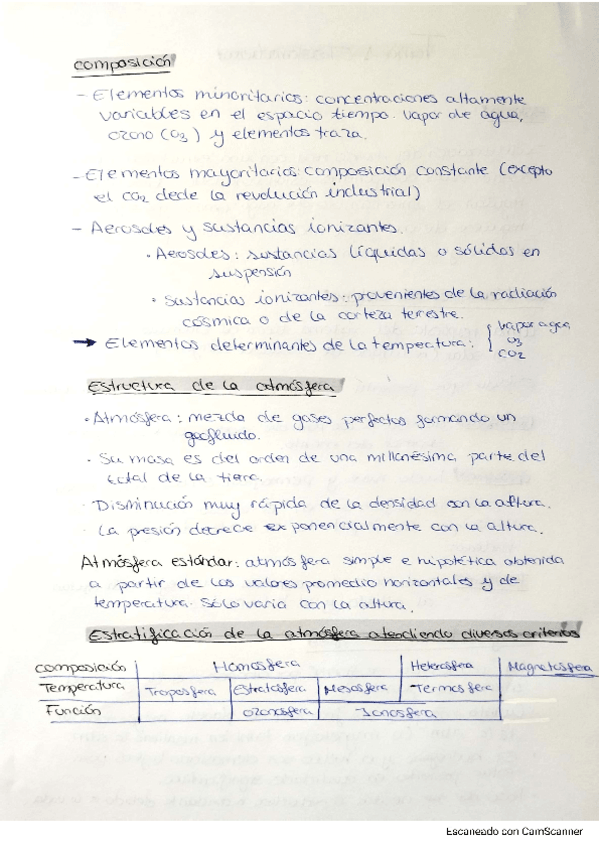 composición
- Elementos minoritarios: concentraciones altamente
variables en el espacio tiempo. vapor de agua,
ozono (O3) y elementos traza.
- Elementos mayoritarios: composición constante (excepto
el CO2 dede la revolución industrial)
- Aerosoles y sustancias ionizantes.
· Aeosoles: sustancias líquidas o sólidas en
suspensión
· Sustancias ionizantes: provenientes de la radiación
cósmica o de la corteza terrestre.
→ Elementos determinantes de la temperatura: { vapor agua
O3
CO2
Estructura de la atmósfera
· Atmósfera: mezcla de gases perfectos formando un
geofluido.
· Su masa es del orden de una millonésima parte del
total de la tierra.
· Disminución muy rápida de la densidad con la altura.
· La presión decrece exponencialmente con la altura.
Atmósfera estándar: atmósfera simple e hipotética obtenida
a partir de los valores promedio horizontales y de
temperatura. Sólo varia con la altura.
Estratificación de la atmósfera atendiendo diversos criterios
composición Homosfera Heterosfera Magnetosfera
Temperatura Troposfera Estratosfera Mesosfera Termosfera
Función Ozonosfera Ionosfera
Escaneado con CamScanner